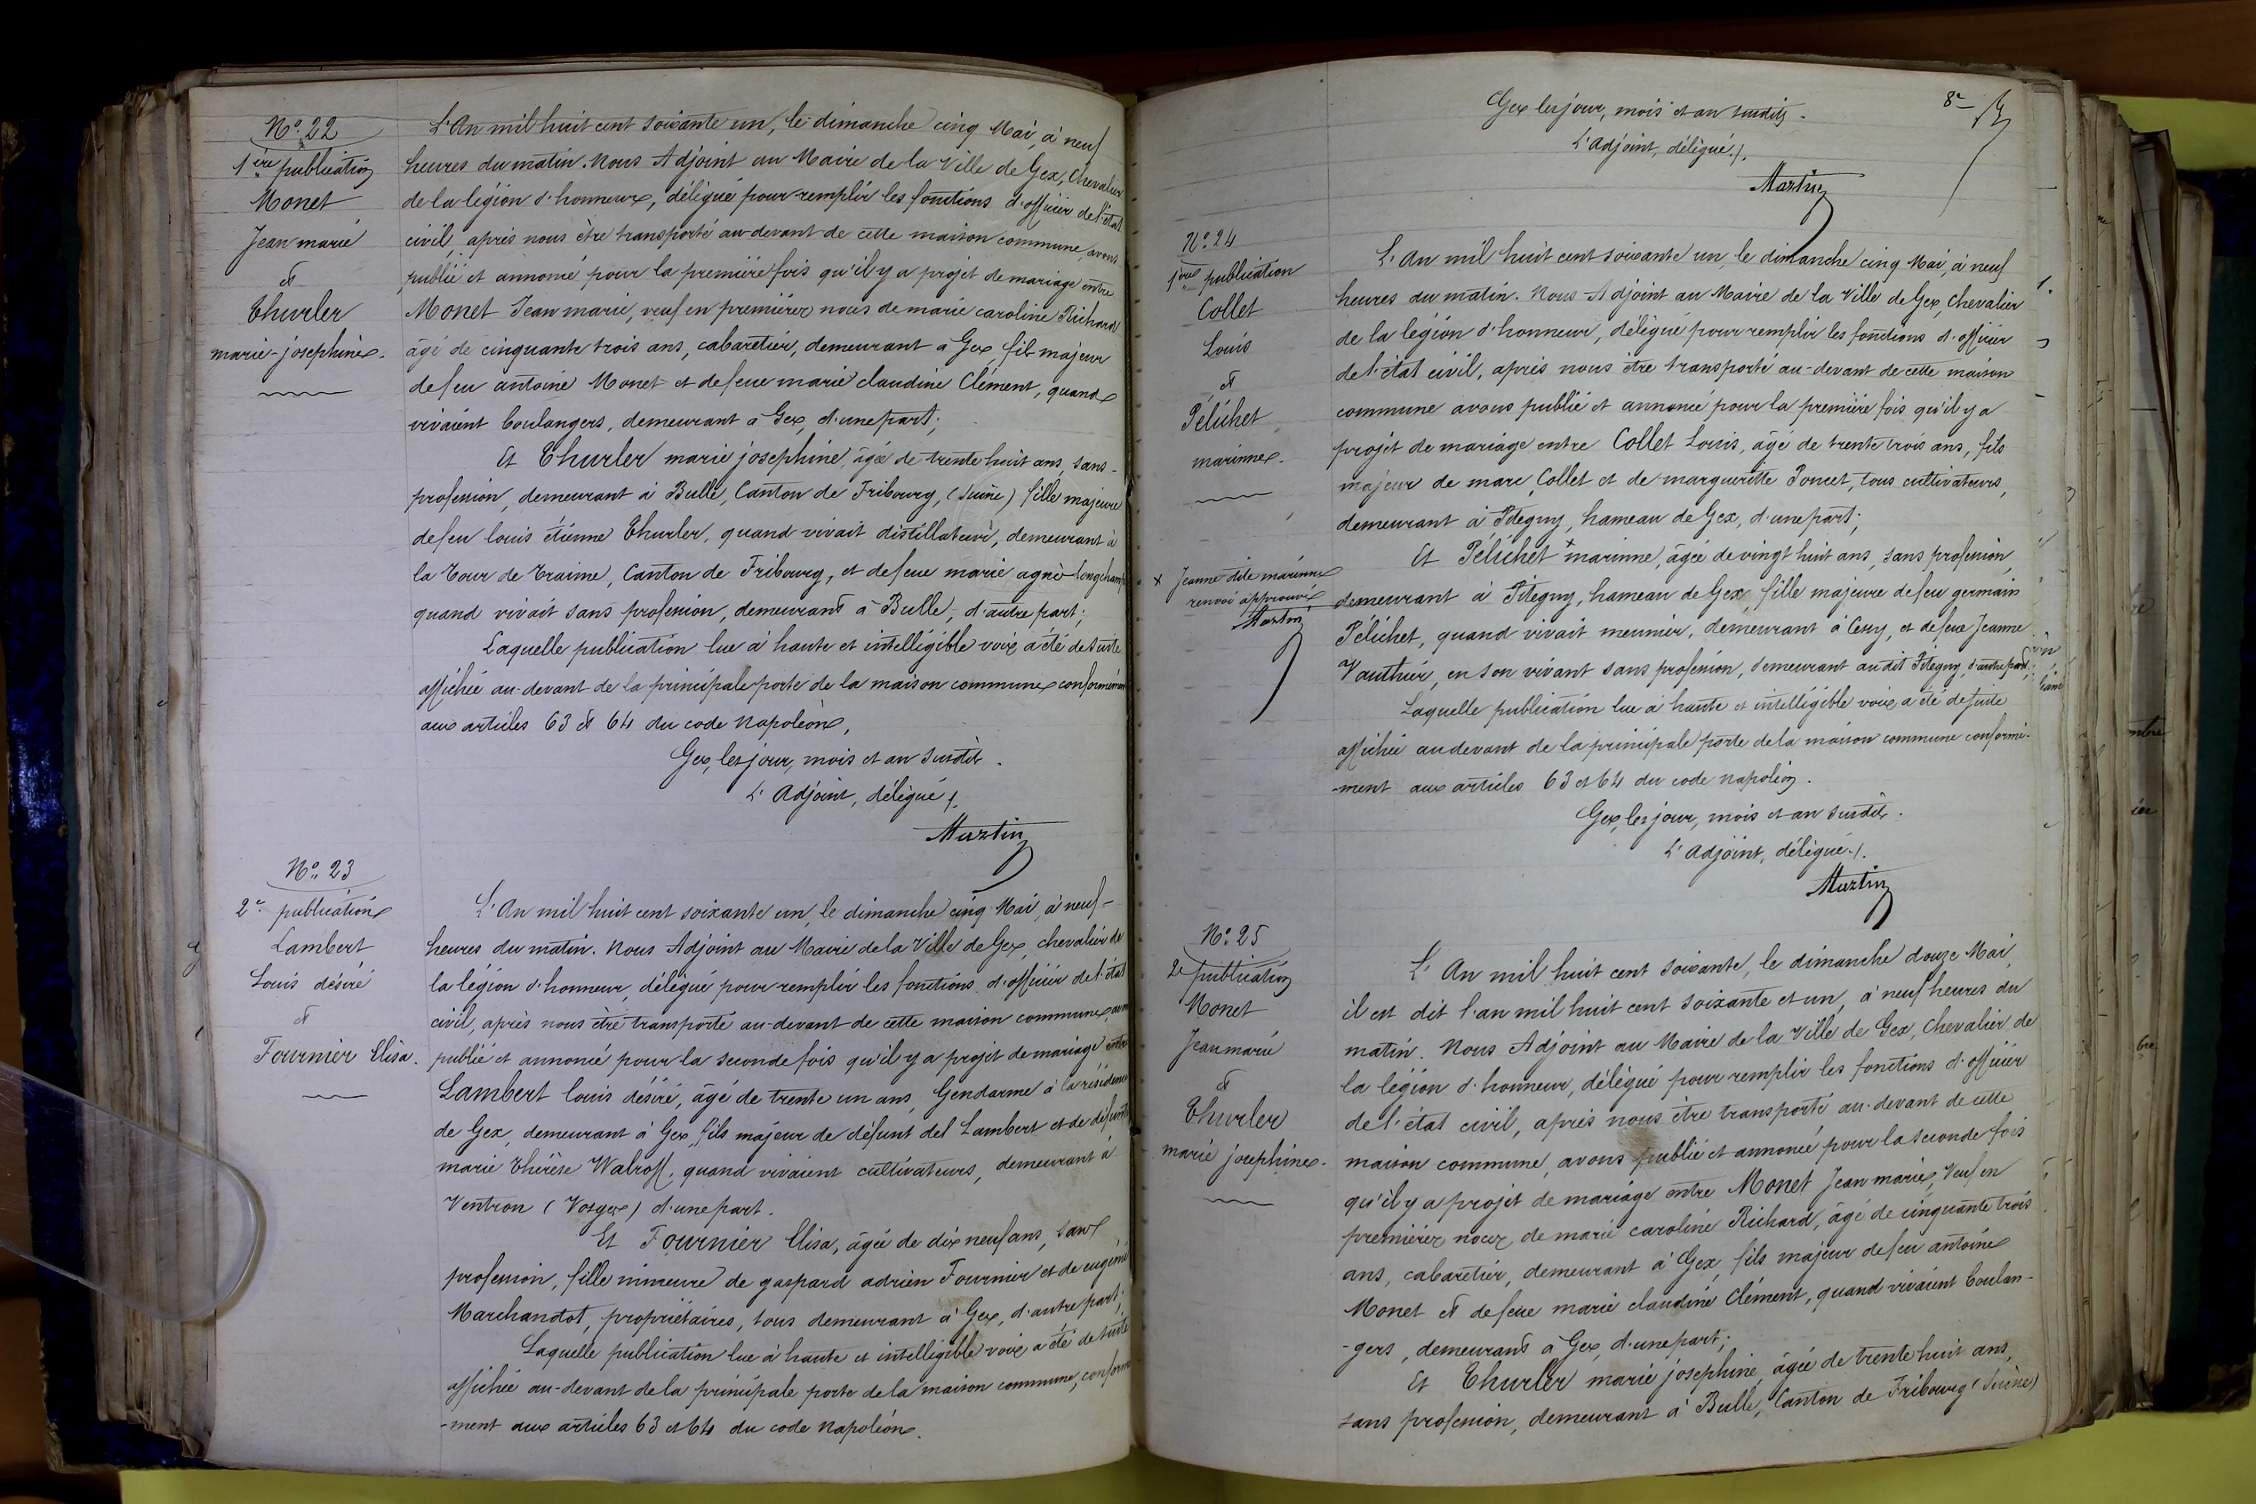 N.° 22
1ère publication
Monet
Jean marie
et
Thurler
marie-josephine.
L'An mil huit cent soixante un, le dimanche cinq Mai, à neuf
heures du matin. Nous Adjoint au Maire de la Ville de Gex, Chevalier
de la légion d'honneur, délégué pour remplir les fonctions d'officier de l'état
civil, après nous être transporté au-devant de cette maison commune, avons
publié et annoncé pour la première fois qu'il y a projet de mariage entre
Monet Jean marie, veuf en premières noces de marie caroline Richard
âgé de cinquante trois ans, cabaretier, demeurant à Gex fils majeur
de feu antoine Monet et de feue marie claudine Clément, quand
vivaient boulangers, demeurant à Gex, d'une part;
Et Thurler marie josephine, âgée de trente huit ans, sans-
profession, demeurant à Bulle, Canton de Fribourg, (Suisse) fille majeure
de feu louis étienne Thurler, quand vivait distillateur, demeurant à
la Tour de Traime, Canton de Fribourg, et de feue marie agnès Longchamp
quand vivait sans profession, demeurant à Bulle, d'autre part;
Laquelle publication lue à haute et intelligible voix a été de suite
affichée au-devant de la principale porte de la maison commune conformément
aux articles 63 et 64 du code Napoléon,
Gex, les jour, mois et an susdits.
L'Adjoint, délégué /.
Martin
N.° 23
2e publication
Lambert
Louis désiré
et
Fournier Elisa.
L'An mil huit cent soixante un, le dimanche cinq Mai, à neuf-
heures du matin. Nous Adjoint au Maire de la Ville de Gex, chevalier de
la légion d'honneur, délégué pour remplir les fonctions d'officier de l'état
civil, après nous être transporté au-devant de cette maison commune, avons
publié et annoncé pour la seconde fois qu'il y a projet de mariage entre
Lambert louis désiré, âgé de trente un ans, Gendarme à la résidence
de Gex, demeurant à Gex, fils majeur de défunt del Lambert et de défunte
marie thérèse Walroff, quand vivaient cultivateurs, demeurant à
Ventron (Vosges) d'une part.
Et Fournier Elisa, âgée de dix neuf ans, sans
profession, fille mineure de gaspard adrien Fournier et de eugénie
Marchandot, propriétaires, tous demeurant à Gex, d'autre part;
Laquelle publication lue à haute et intelligible voix a été de suite
affichée au-devant de la principale porte de la maison commune, conformé
-ment aux articles 63 et 64 du code Napoléon.
8e
Gex les jour, mois et an susdits.
L'adjoint, délégué /.
Martin
N.° 24
1ère publication
Collet
Louis
et
Pélichet
marinne.
L'An mil huit cent soixante un, le dimanche cinq Mai, à neuf
heures du matin. Nous Adjoint au Maire de la Ville de Gex, Chevalier
de la légion d'honneur, délégué pour remplir les fonctions d'officier
de l'état civil, après nous être transporté au-devant de cette maison
commune avons publié et annoncé pour la première fois qu'il y a
projet de mariage entre Collet Louis, âgé de trente trois ans, fils
majeur de marc Collet et de marguerite Poncet, tous cultivateurs,
demeurant à Pitegny, hameau de Gex, d'une part;
Et Pélichet x marinne, âgée de vingt huit ans, sans profession,
x Jeanne dite marinne
renvoi approuvé
Martin
demeurant à Pitegny, hameau de Gex, fille majeure de feu germain
Pélichet, quand vivait meunier, demeurant à Cessy, et de feue Jeanne
Vauthier, en son vivant sans profession, demeurant au dit Pitegny, d'autre part;
Laquelle publication lue à haute et intelligible voix a été de suite
affichée au devant de la principale porte de la maison commune conformé-
-ment aux articles 63 et 64 du code Napoléon.
Gex, les jour, mois et an susdits.
L'adjoint, délégué /.
Martin
N.° 25
2e publication
Monet
Jean marie
et
Thurler
marie josephine.
L'An mil huit cent soixante, le dimanche douze Mai,
il est dit l'an mil huit cent soixante et un, à neuf heures du
matin. Nous Adjoint au Maire de la Ville de Gex, Chevalier de
la légion d'honneur, délégué pour remplir les fonctions d'officier
de l'état civil, après nous être transporté au-devant de cette
maison commune, avons publié et annoncé pour la seconde fois
qu'il y a projet de mariage entre Monet Jean marie, Veuf en
premières noces de marie caroline Richard, âgé de cinquante trois
ans, cabaretier, demeurant à Gex, fils majeur de feu antoine
Monet et de feue marie claudine Clément, quand vivaient boulan-
-gers, demeurant à Gex, d'une part;
Et Thurler marie josephine, âgée de trente huit ans,
sans profession, demeurant à Bulle, Canton de Fribourg (Suisse)